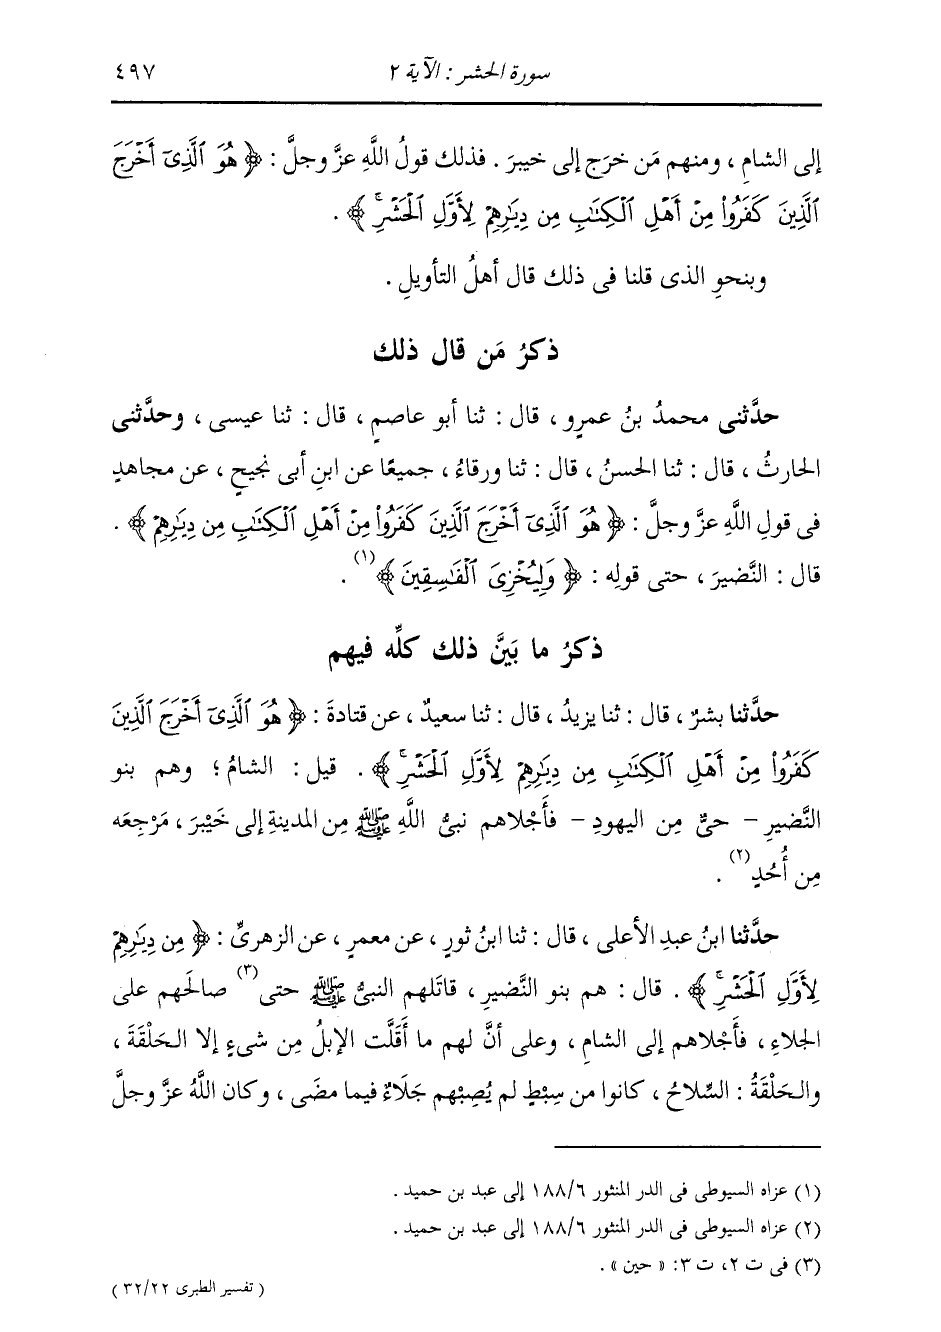 سورة الحشر : الآية ٢ ٤٩٧
إلى الشامِ ، ومنهم مَن خرَج إلى خيبرَ . فذلك قولُ اللَّهِ عزَّ وجلَّ : ﴿ هُوَ ٱلَّذِىٓ أَخْرَجَ
ٱلَّذِينَ كَفَرُوا۟ مِنْ أَهْلِ ٱلْكِتَٰبِ مِن دِيَٰرِهِمْ لِأَوَّلِ ٱلْحَشْرِ ۚ ﴾ .
وبنحوِ الذى قلنا فى ذلك قال أهلُ التأويلِ .
ذكرُ مَن قال ذلك
حدَّثنى محمدُ بنُ عمرٍو ، قال : ثنا أبو عاصمٍ ، قال : ثنا عيسى ، وحدَّثنى
الحارثُ ، قال : ثنا الحسنُ ، قال : ثنا ورقاءُ ، جميعًا عن ابنِ أبى نجيحٍ ، عن مجاهدٍ
فى قولِ اللَّهِ عزَّ وجلَّ : ﴿ هُوَ ٱلَّذِىٓ أَخْرَجَ ٱلَّذِينَ كَفَرُوا۟ مِنْ أَهْلِ ٱلْكِتَٰبِ مِن دِيَٰرِهِمْ ﴾ .
قال : النَّضيرَ ، حتى قولِه : ﴿ وَلِيُخْزِىَ ٱلْفَٰسِقِينَ ﴾(١) .
ذكرُ ما بَيَّن ذلك كلِّه فيهم
حدَّثنا بشرٌ ، قال : ثنا يزيدُ ، قال : ثنا سعيدٌ ، عن قتادةَ : ﴿ هُوَ ٱلَّذِىٓ أَخْرَجَ ٱلَّذِينَ
كَفَرُوا۟ مِنْ أَهْلِ ٱلْكِتَٰبِ مِن دِيَٰرِهِمْ لِأَوَّلِ ٱلْحَشْرِ ۚ ﴾ . قيل : الشامُ ؛ وهم بنو
النَّضيرِ - حىٌّ مِن اليهودِ - فأَجْلاهم نبىُّ اللَّهِ ﷺ مِن المدينةِ إلى خَيْبَرَ ، مَرْجِعَه
مِن أُحُدٍ(٢) .
حدَّثنا ابنُ عبدِ الأعلى ، قال : ثنا ابنُ ثورٍ ، عن معمرٍ ، عن الزهرىِّ : ﴿ مِن دِيَٰرِهِمْ
لِأَوَّلِ ٱلْحَشْرِ ۚ ﴾ . قال : هم بنو النَّضيرِ ، قاتَلهم النبىُّ ﷺ حتى(٣) صالَحهم على
الجلاءِ ، فأَجْلاهم إلى الشامِ ، وعلى أنَّ لهم ما أَقَلَّت الإبلُ مِن شىءٍ إلا الحَلْقَةَ ،
والحَلْقَةُ : السِّلاحُ ، كانوا من سِبْطٍ لم يُصِبْهم جَلَاءٌ فيما مضَى ، وكان اللَّهُ عزَّ وجلَّ
(١) عزاه السيوطى فى الدر المنثور ١٨٨/٦ إلى عبد بن حميد .
(٢) عزاه السيوطى فى الدر المنثور ١٨٨/٦ إلى عبد بن حميد .
(٣) فى ت ٢، ت ٣: « حين » .
( تفسير الطبرى ٣٢/٢٢ )